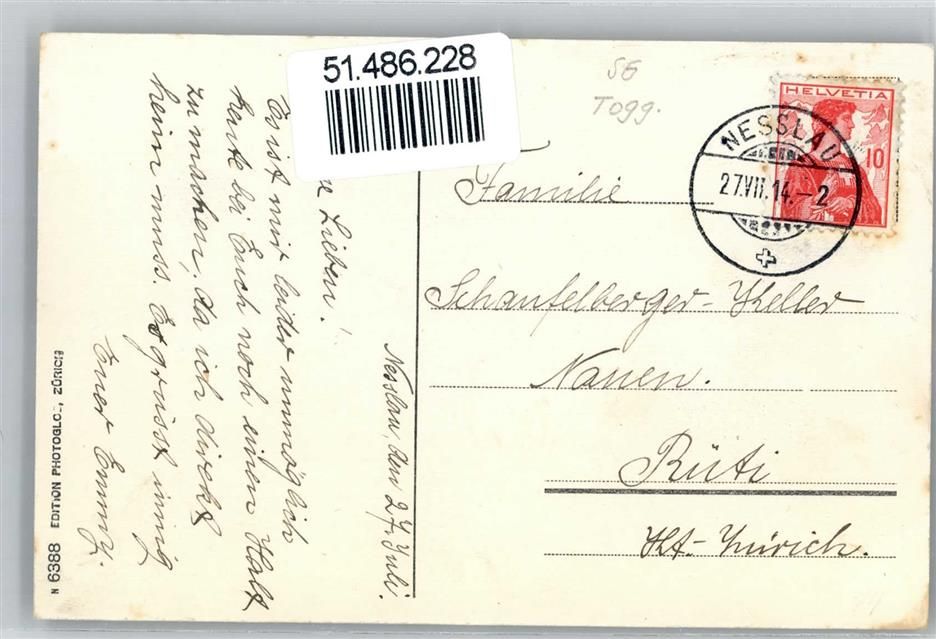 51.486.228
SG
Togg.
HELVETIA
10
NESSLAU
27.VII.14.–2
Nesslau, den 27. Juli.
Lieben!
Es ist mir leider unmöglich
heute bei Euch noch einen Halt
zu machen, da ich direkt
heim muss. Es grüsst innig
Euer Emmy.
Familie
Schaufelberger-Keller
Nauen.
Rüti
Kt. Zürich.
N 6388 EDITION PHOTOGLOB, ZÜRICH